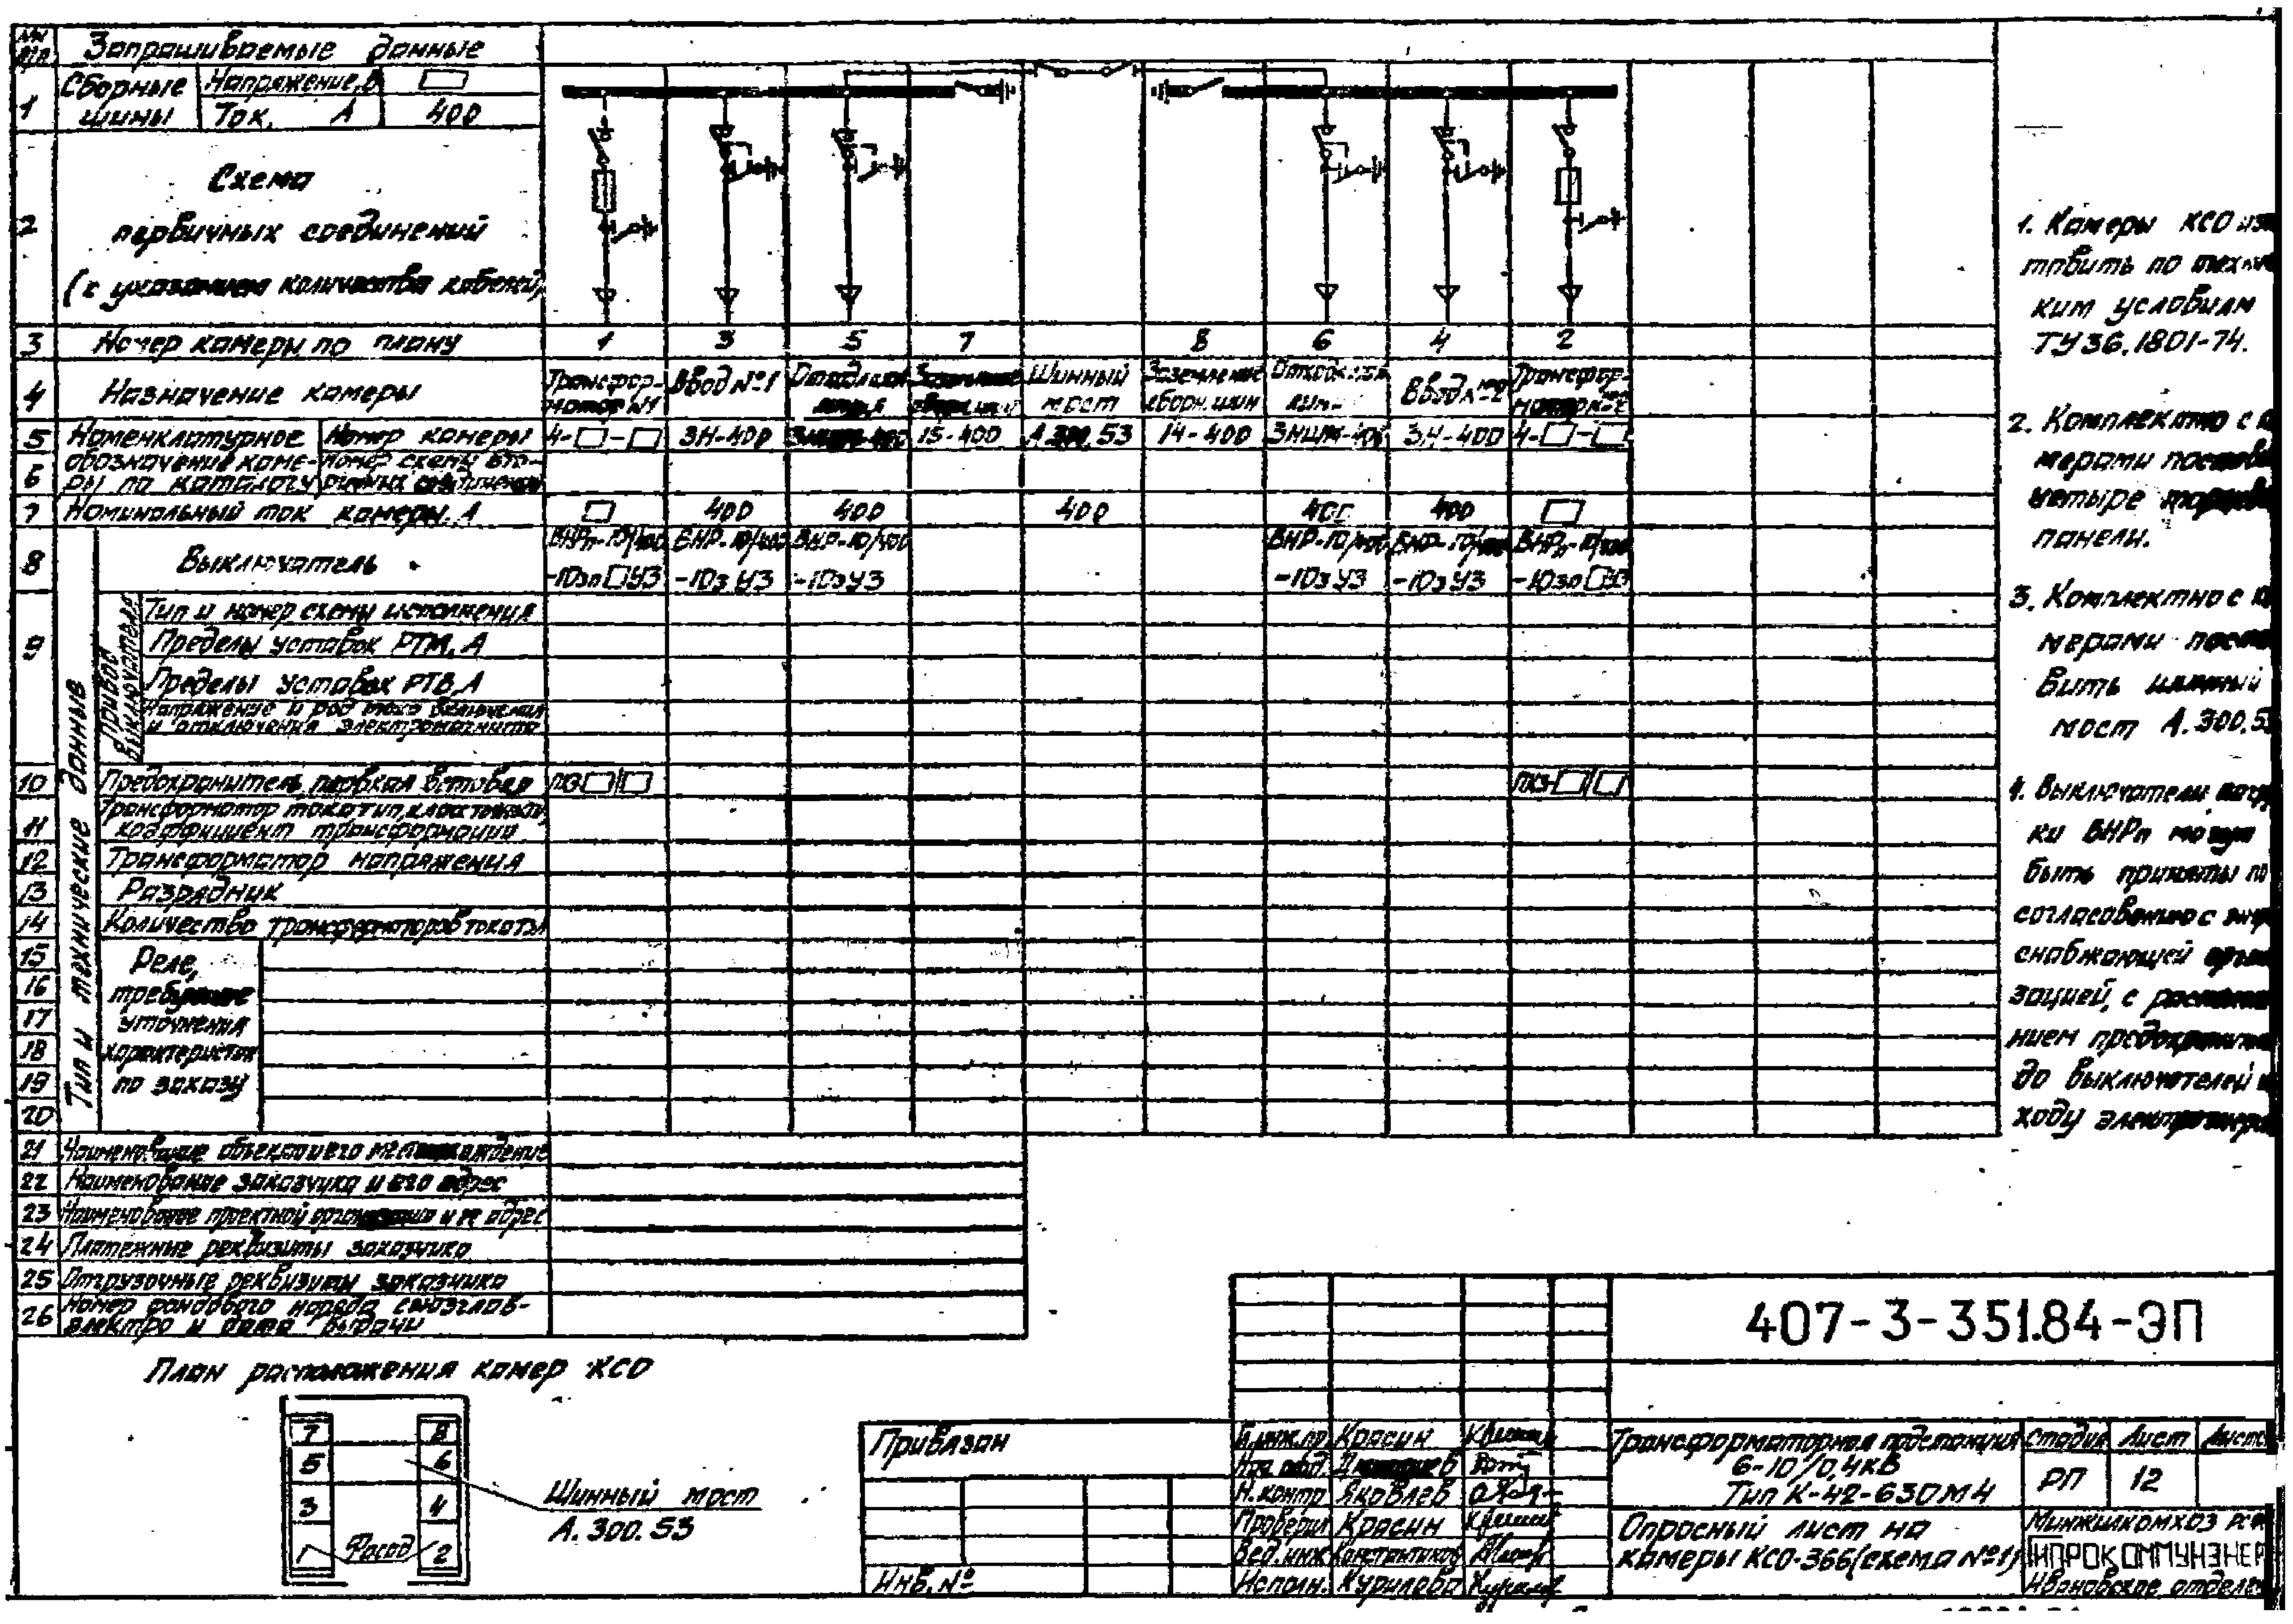 NN п/п Запрашиваемые данные
1 Сборные шины Напряжение, В
Ток, А 400
2 Схема
первичных соединений
(с указанием количества кабелей)
3 Номер камеры по плану 1 3 5 7 8 6 4 2
4 Назначение камеры Трансформатор №1 Ввод №1 Шинный мост Заземление сборн. шин Ввод №2 Трансформатор №2
5 Номенклатурное Номер камеры 4-□-□ 3Н-400 15-400 А.300.53 14-400 3Н-400 4-□-□
6 обозначение камеры по каталогу Номер схемы вторичных соединений
7 Номинальный ток камеры, А □ 400 400 400 400 400 □
8 Выключатель ВНРп-10/400 ВНР-10/400 ВНР-10/400 ВНР-10/400 ВНР-10/400 ВНРп-10/400
-10зп□У3 -10зУ3 -10зУ3 -10зУ3 -10зУ3 -10зп□У3
Тип и технические данные
9 Привод выключателя
Тип и номер схемы исполнения
Пределы уставок РТМ, А
Пределы уставок РТВ, А
Напряжение и род тока включения
и отключения электромагнита
10 Предохранитель плавкая вставка ПКЭ-□/□
11 Трансформатор тока тип,
коэффициент трансформации
12 Трансформатор напряжения
13 Разрядник
14 Количество трансформаторов тока
15 Реле,
16 требующие
17 уточнения
18 характеристик
19 по заказу
20
21 Наименование объекта и его местонахождение
22 Наименование заказчика и его адрес
23 Наименование проектной организации и ее адрес
24 Платежные реквизиты заказчика
25 Отгрузочные реквизиты заказчика
26 Номер фондового наряда союзглав-
электро и дата выдачи
1. Камеры КСО изго
товить по техниче
ким условиям
ТУ36.1801-74.
2. Комплектно с
мерами
четыре
панели.
3. Комплектно с
мерами
вить шинный
мост А.300.53
4. Выключатели нагруз
ки ВНРп могут
быть приняты по
согласованию с
снабжающей
зацией, с
нием
до выключателей
ходу
План расположения камер КСО
7 8
5 6
3 4
1 Фасад 2
Шинный мост
А.300.53
Привязан
Инв. №
407-3-351.84-ЭП
Гл.инж.пр. Красин
Нач. отд.
Н. контр. Яковлев
Проверил Красин
Вед. инж. Константинов
Исполн. Курилова
Трансформаторная подстанция
6-10/0,4кВ
Тип К-42-630М4
Стадия Лист
РП 12
Опросный лист на
камеры КСО-366 (схема №1)
Минжилкомхоз
ГИПРОКОММУНЭНЕР
Ивановское